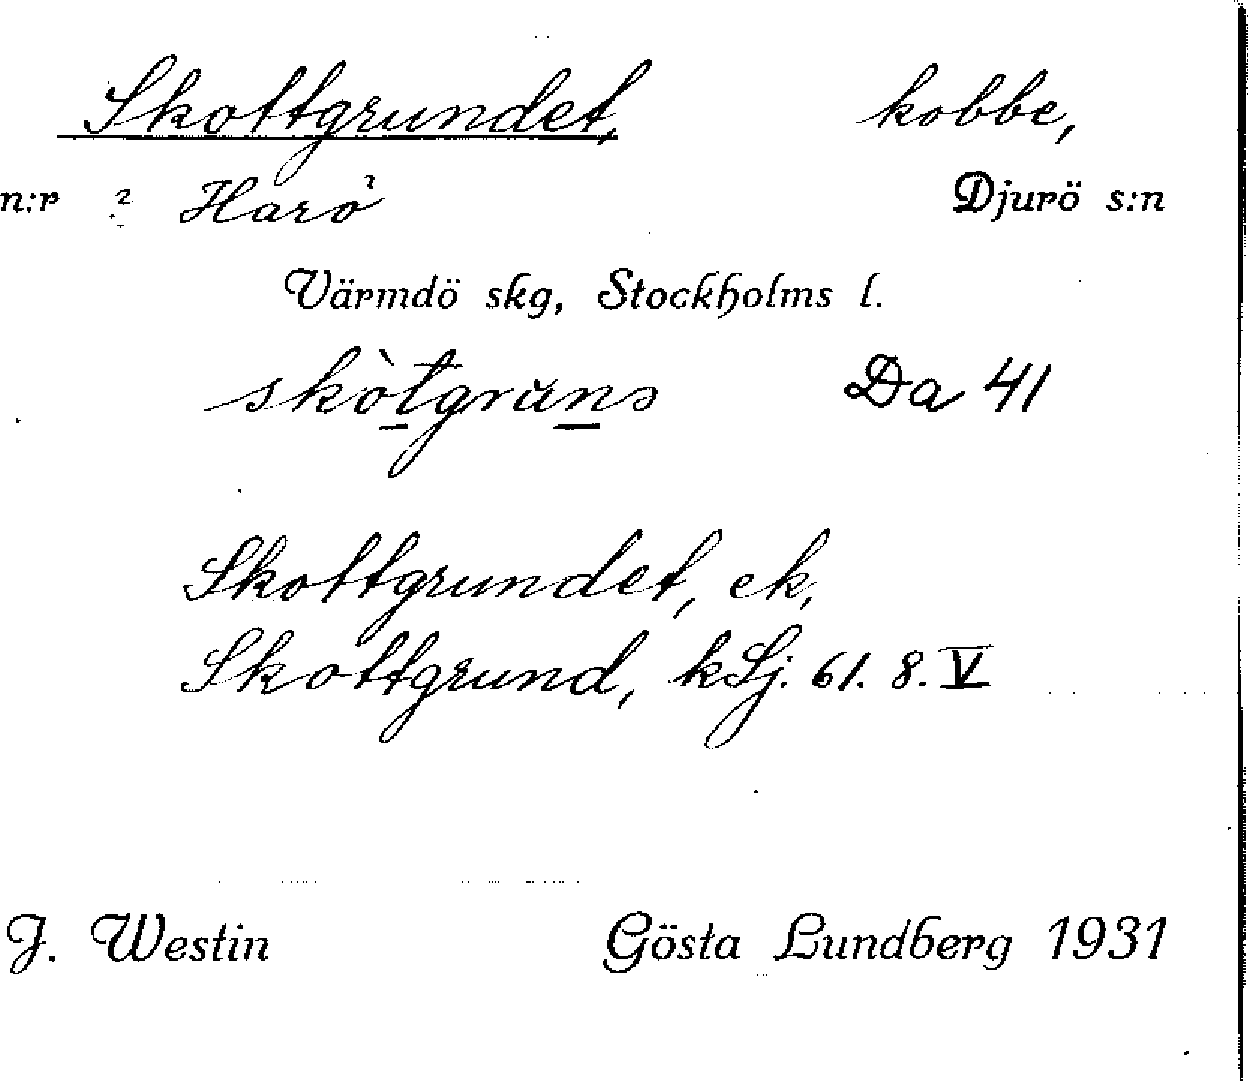 Skottgrundet, kobbe,
n:r 2 Harö Djurö s:n
Värmdö skg, Stockholms l.
skòtgrŭns Da 41
Skottgrundet, ek,
Skottgrund, kSj. 61. 8. V
J. Westin Gösta Lundberg 1931